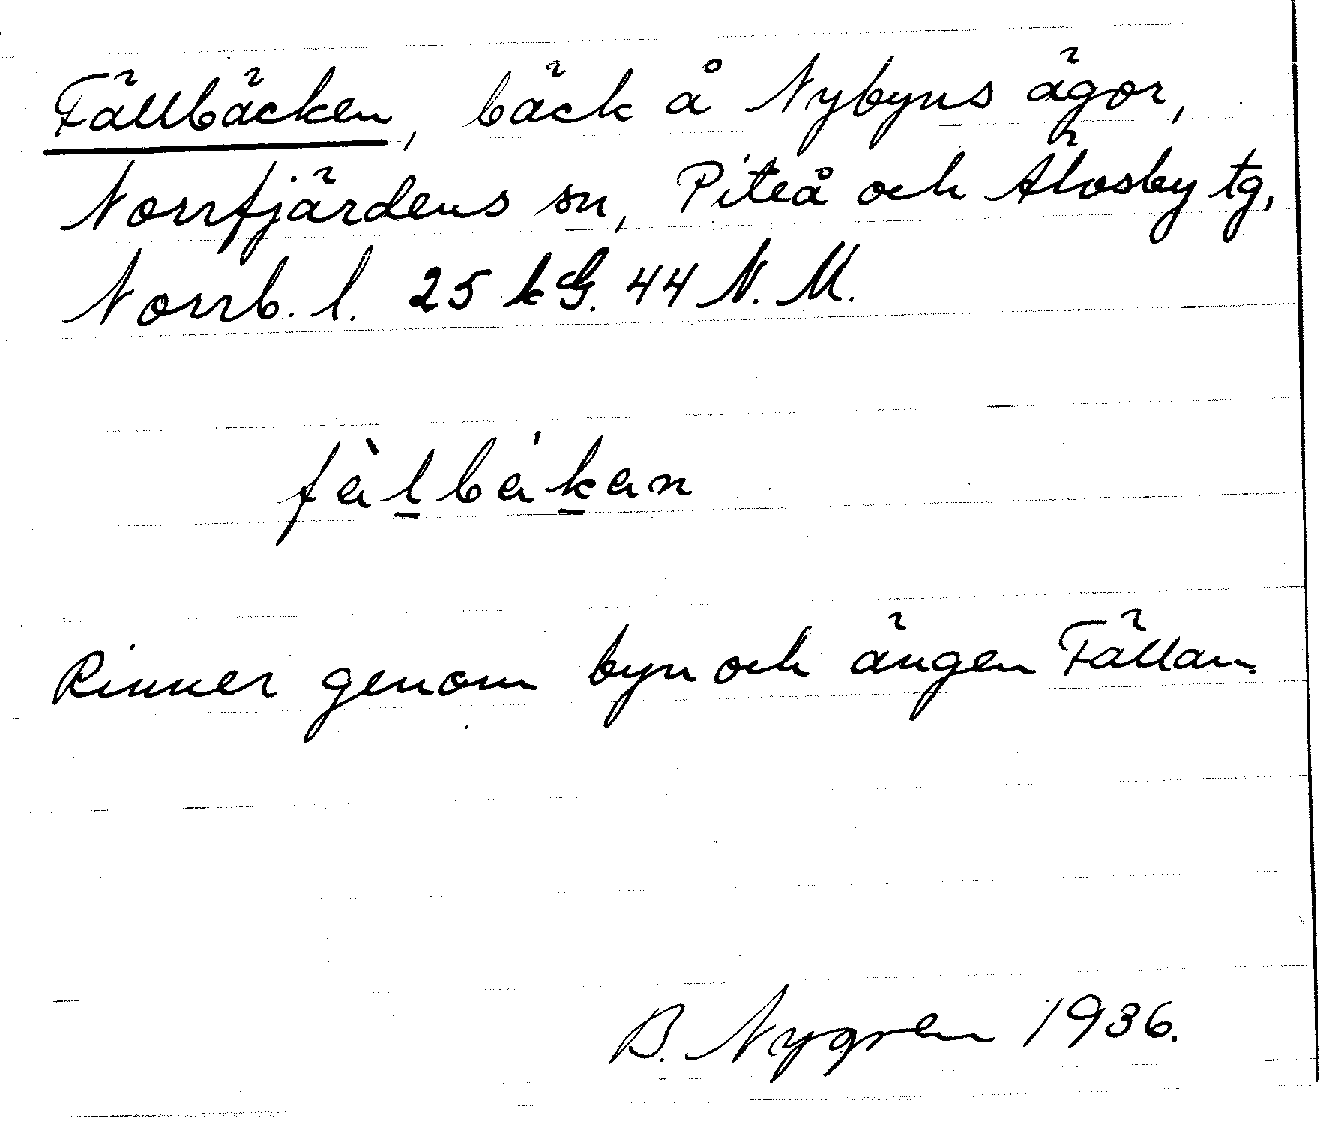 Fällbäcken, bäck å Nybyns ägor,
Norrfjärdens sn, Piteå och Älvsby tg,
Norrb. l. 25 k G. 44 N. M.
fàl̲bák̲an
Rinner genom byn och ängen Fällan.
B. Nygren 1936.